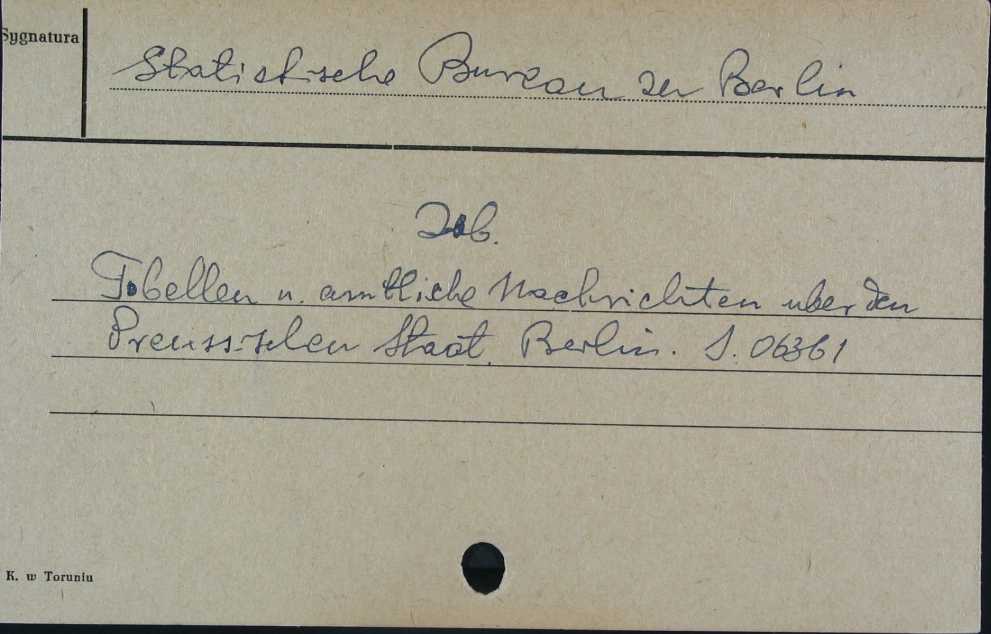 Sygnatura
Statistische Bureau zu Berlin
Zob.
Tabellen u. amtliche Nachrichten uber den
Preussischen Staat. Berlin. S. 06361
K. w Toruniu